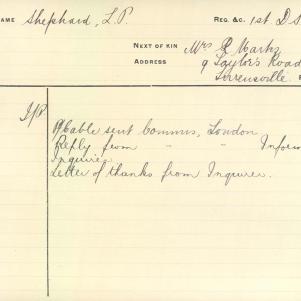 NAME Shephard, L.P. REG. &C. 1st D.S
NEXT OF KIN Mrs R Marks
ADDRESS 9 Taylor's Road
Torrensville.
Cable sent Commis, London
Reply from " " Inform
Inquirer
Letter of thanks from Inquirer.